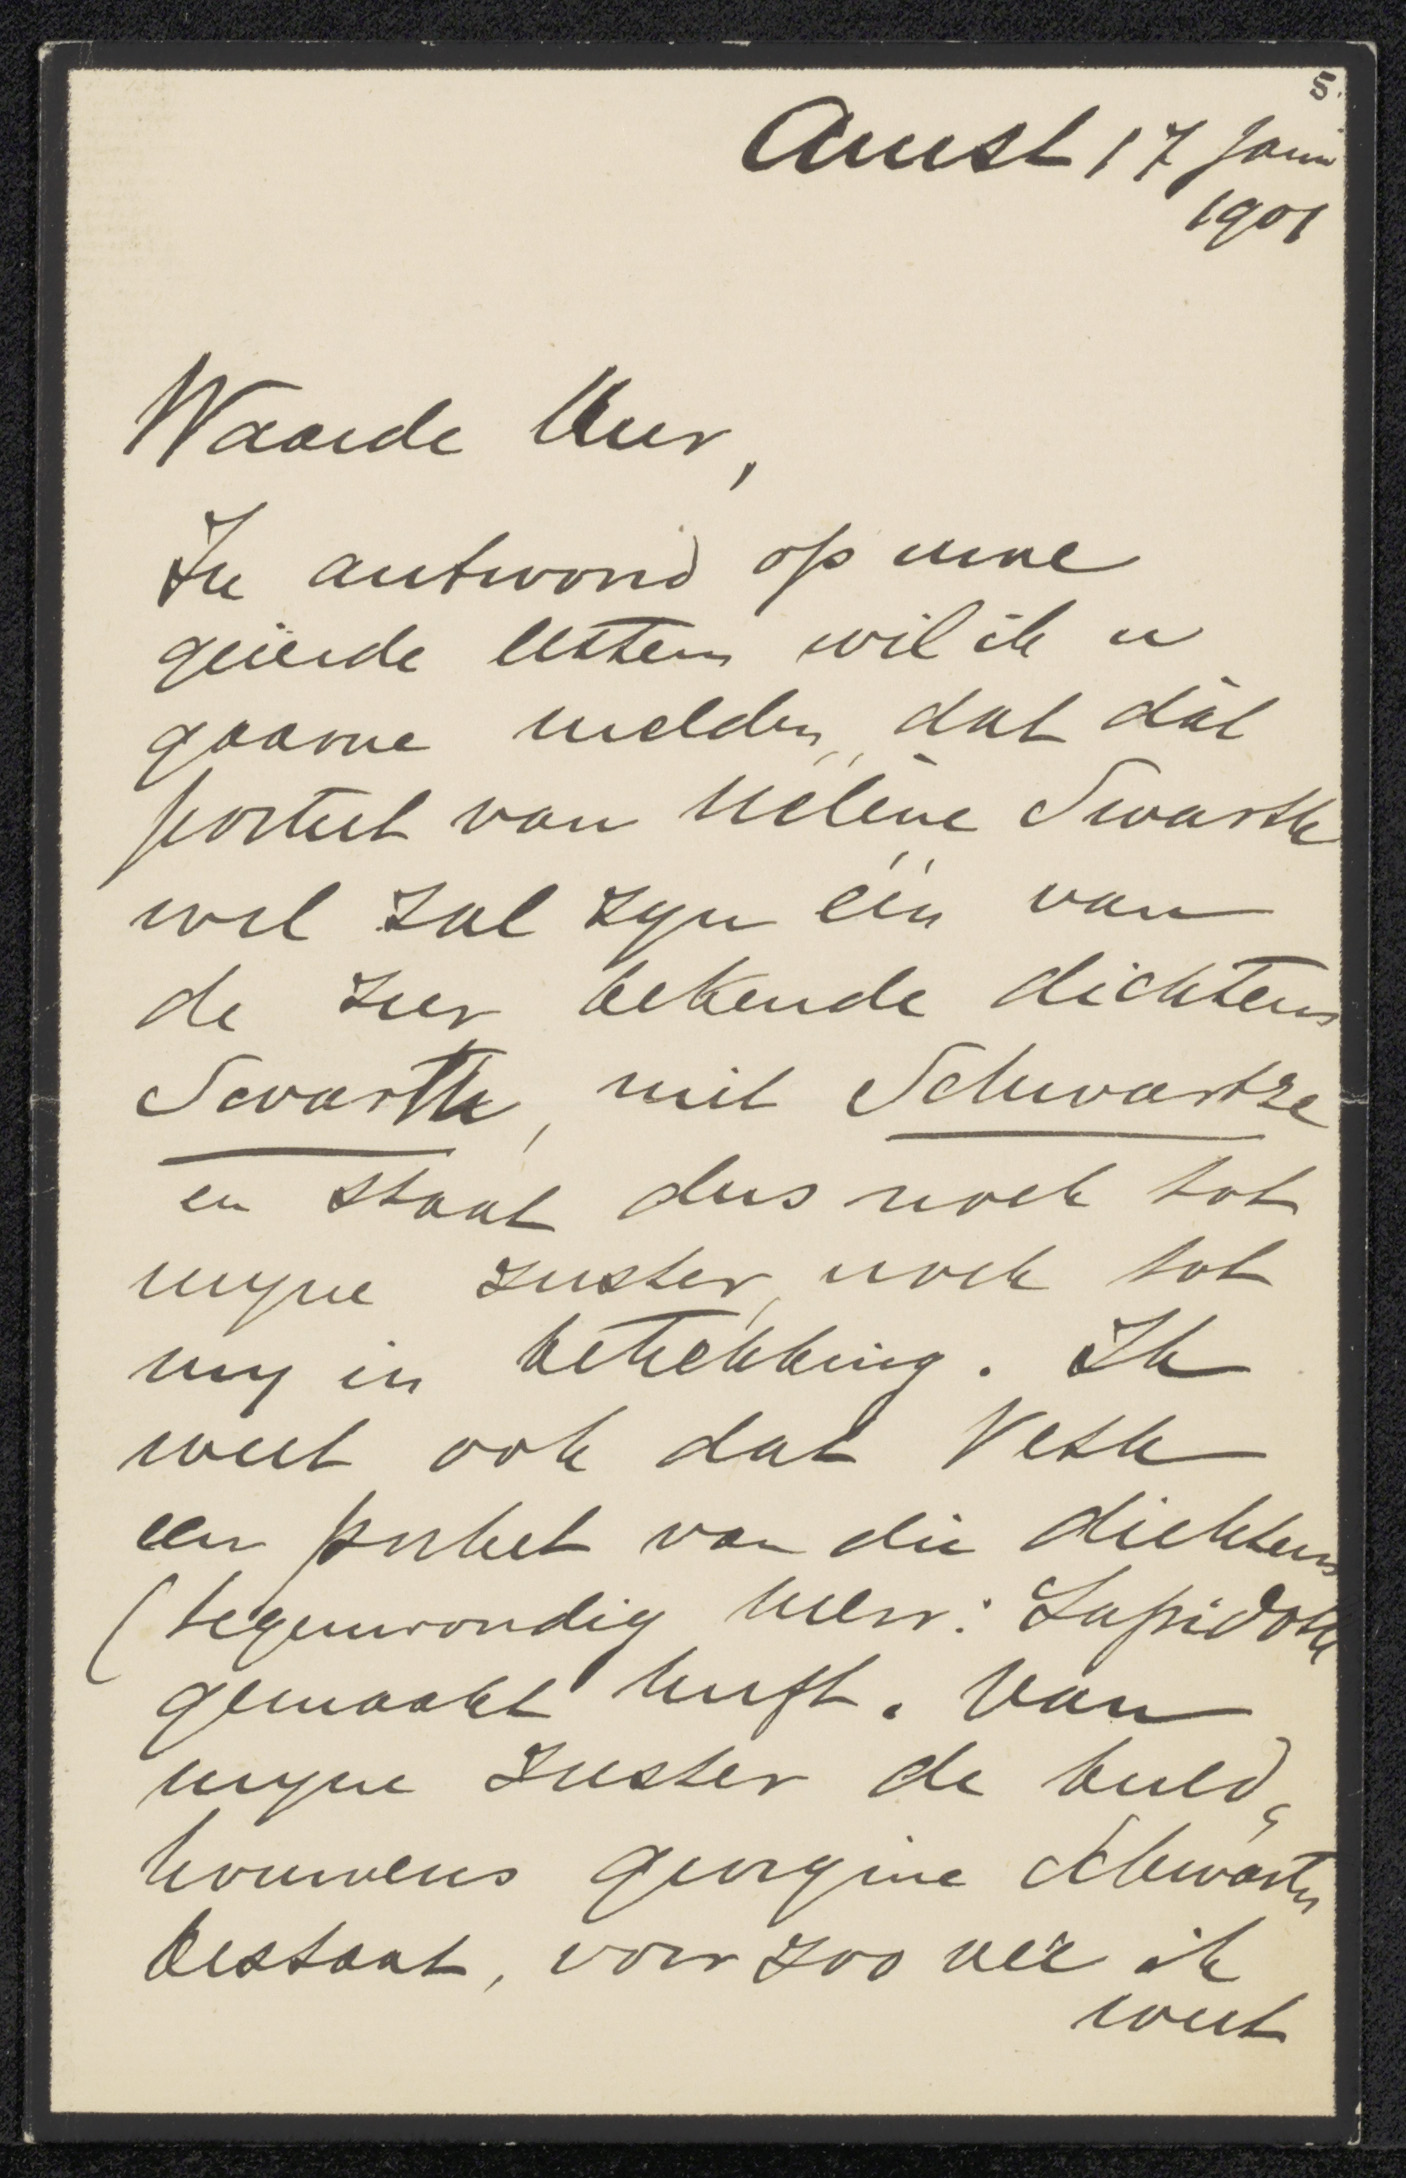 5.
Amst 17 Janu
1901
Waarde Heer,
In antwoord op uwe
geëerde letteren wil ik u
gaarne melden, dat dàt
portret van Hélène Swarth
wel zal zyn één van
de zeer bekende dichteres
Swarth, niet Schwartze
en staat dus noch tot
myne zuster, noch tot
my in betrekking. Ik
weet ook dat Veth
een portret van die dichteres
(tegenwoordig mevr: Lapidoth
gemaakt heeft. Van
myne zuster de beeld,
houweres Georgine Schwartze
bestaat, voor zoo ver ik
weet